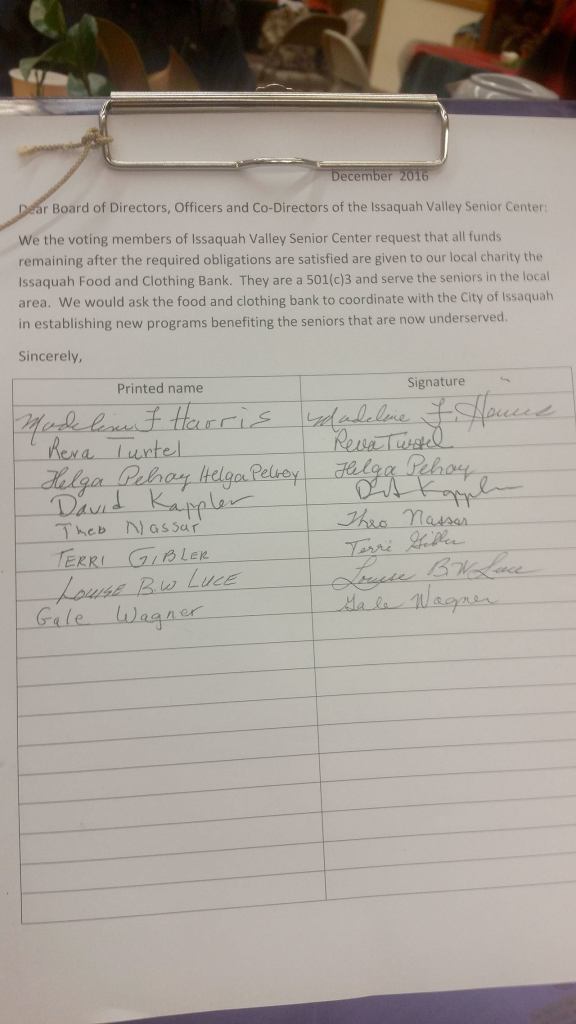 December 2016
Dear Board of Directors, Officers and Co-Directors of the Issaquah Valley Senior Center:
We the voting members of Issaquah Valley Senior Center request that all funds
remaining after the required obligations are satisfied are given to our local charity the
Issaquah Food and Clothing Bank. They are a 501(c)3 and serve the seniors in the local
area. We would ask the food and clothing bank to coordinate with the City of Issaquah
in establishing new programs benefiting the seniors that are now underserved.
Sincerely,
Printed name Signature
Madeline F Harris Madeline F. Harris
Reva Turtel Reva Turtel
Helga Pelroy Helga Pelroy Helga Pelroy
David Kappler Kappler
Theo Nassar Theo Nassar
TERRI GIBLER Terri Gibler
LOUISE B.W LUCE Louise B W Luce
Gale Wagner Gale Wagner